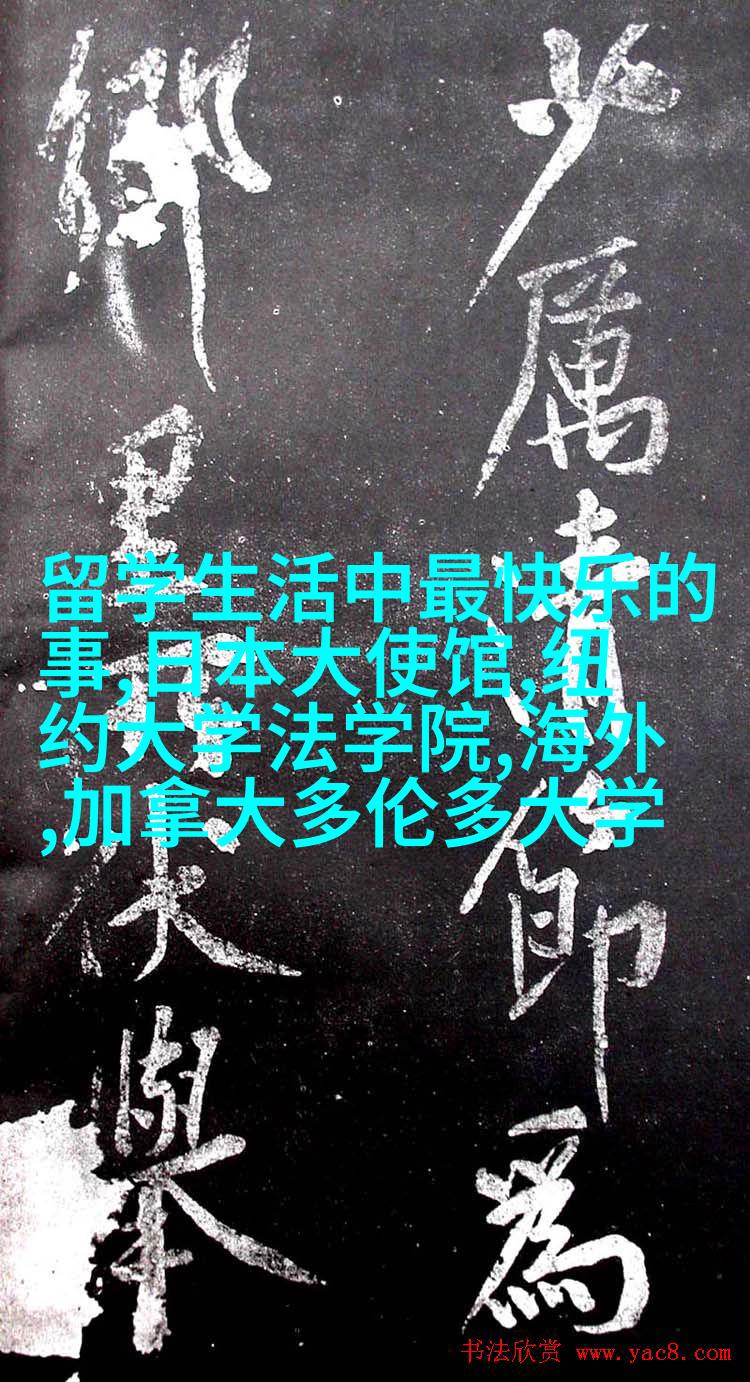 少厲清節為
鄉里伏舉
留学生活中最快乐的
事,日本大使馆,纽
约大学法学院,海外
,加拿大多伦多大学
书法欣赏 www.yac8.com